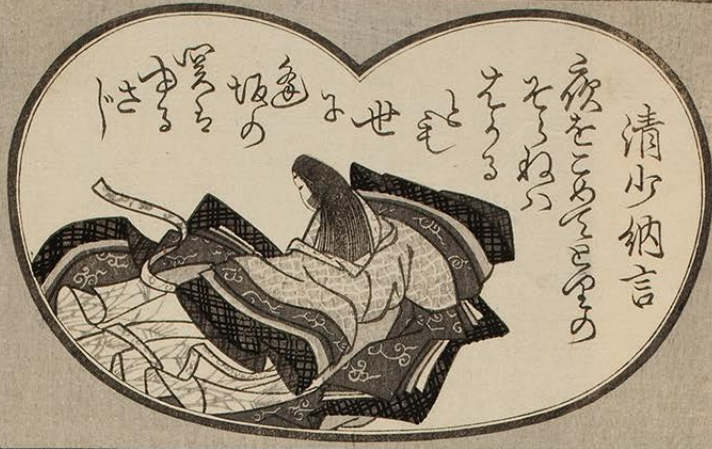 清少納言
夜をこめてと里の
そらねハ
はかる
とも
世
に
逢
坂の
関は
ゆる
さ
じ